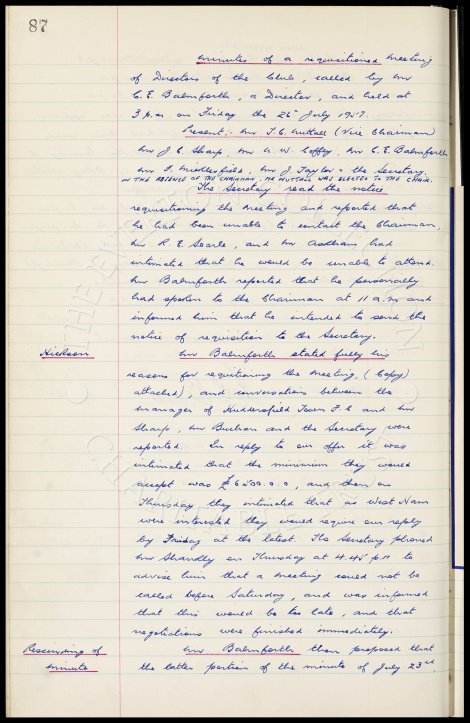 87
Minutes of a requisitioned meeting
of Directors of the Club, called by Mr
C. E. Balmforth, a Director, and held at
3 p.m on Friday the 26th July 1957.
Present:- Mr T. C. Nuttall (Vice Chairman)
Mr J. C. Sharp, Mr A. W. Coffey, Mr C. E. Balmforth
Mr F. Micklesfield, Mr J. Taylor & the Secretary.
IN THE ABSENCE OF THE CHAIRMAN, MR NUTTALL WAS ELECTED TO THE CHAIR.
The Secretary read the notice
requisitioning the meeting and reported that
he had been unable to contact the Chairman,
Mr R. E. Searle, and Mr Askham had
intimated that he would be unable to attend.
Mr Balmforth reported that he personally
had spoken to the Chairman at 11 a.m and
informed him that he intended to send the
notice of requisition to the Secretary.
Hickson
Mr Balmforth stated fully his
reasons for requitioning the meeting, (Copy)
attached), and conversations between the
manager of Huddersfield Town F.C and Mr
Sharp, Mr Burham and the Secretary were
reported. In reply to our offer it was
intimated that the minimum they would
accept was £6500.0.0, and then on
Thursday they intimated that as West Ham
were interested they would require our reply
by Friday at the latest. The Secretary phoned
Mr Shankly on Thursday at 4.45 p.m to
advise him that a meeting could not be
called before Saturday, and was informed
that this would be too late, and that
negotiations were finished immediately.
Rescinding of
minute
Mr Balmforth then proposed that
the latter portion of the minute of July 23rd